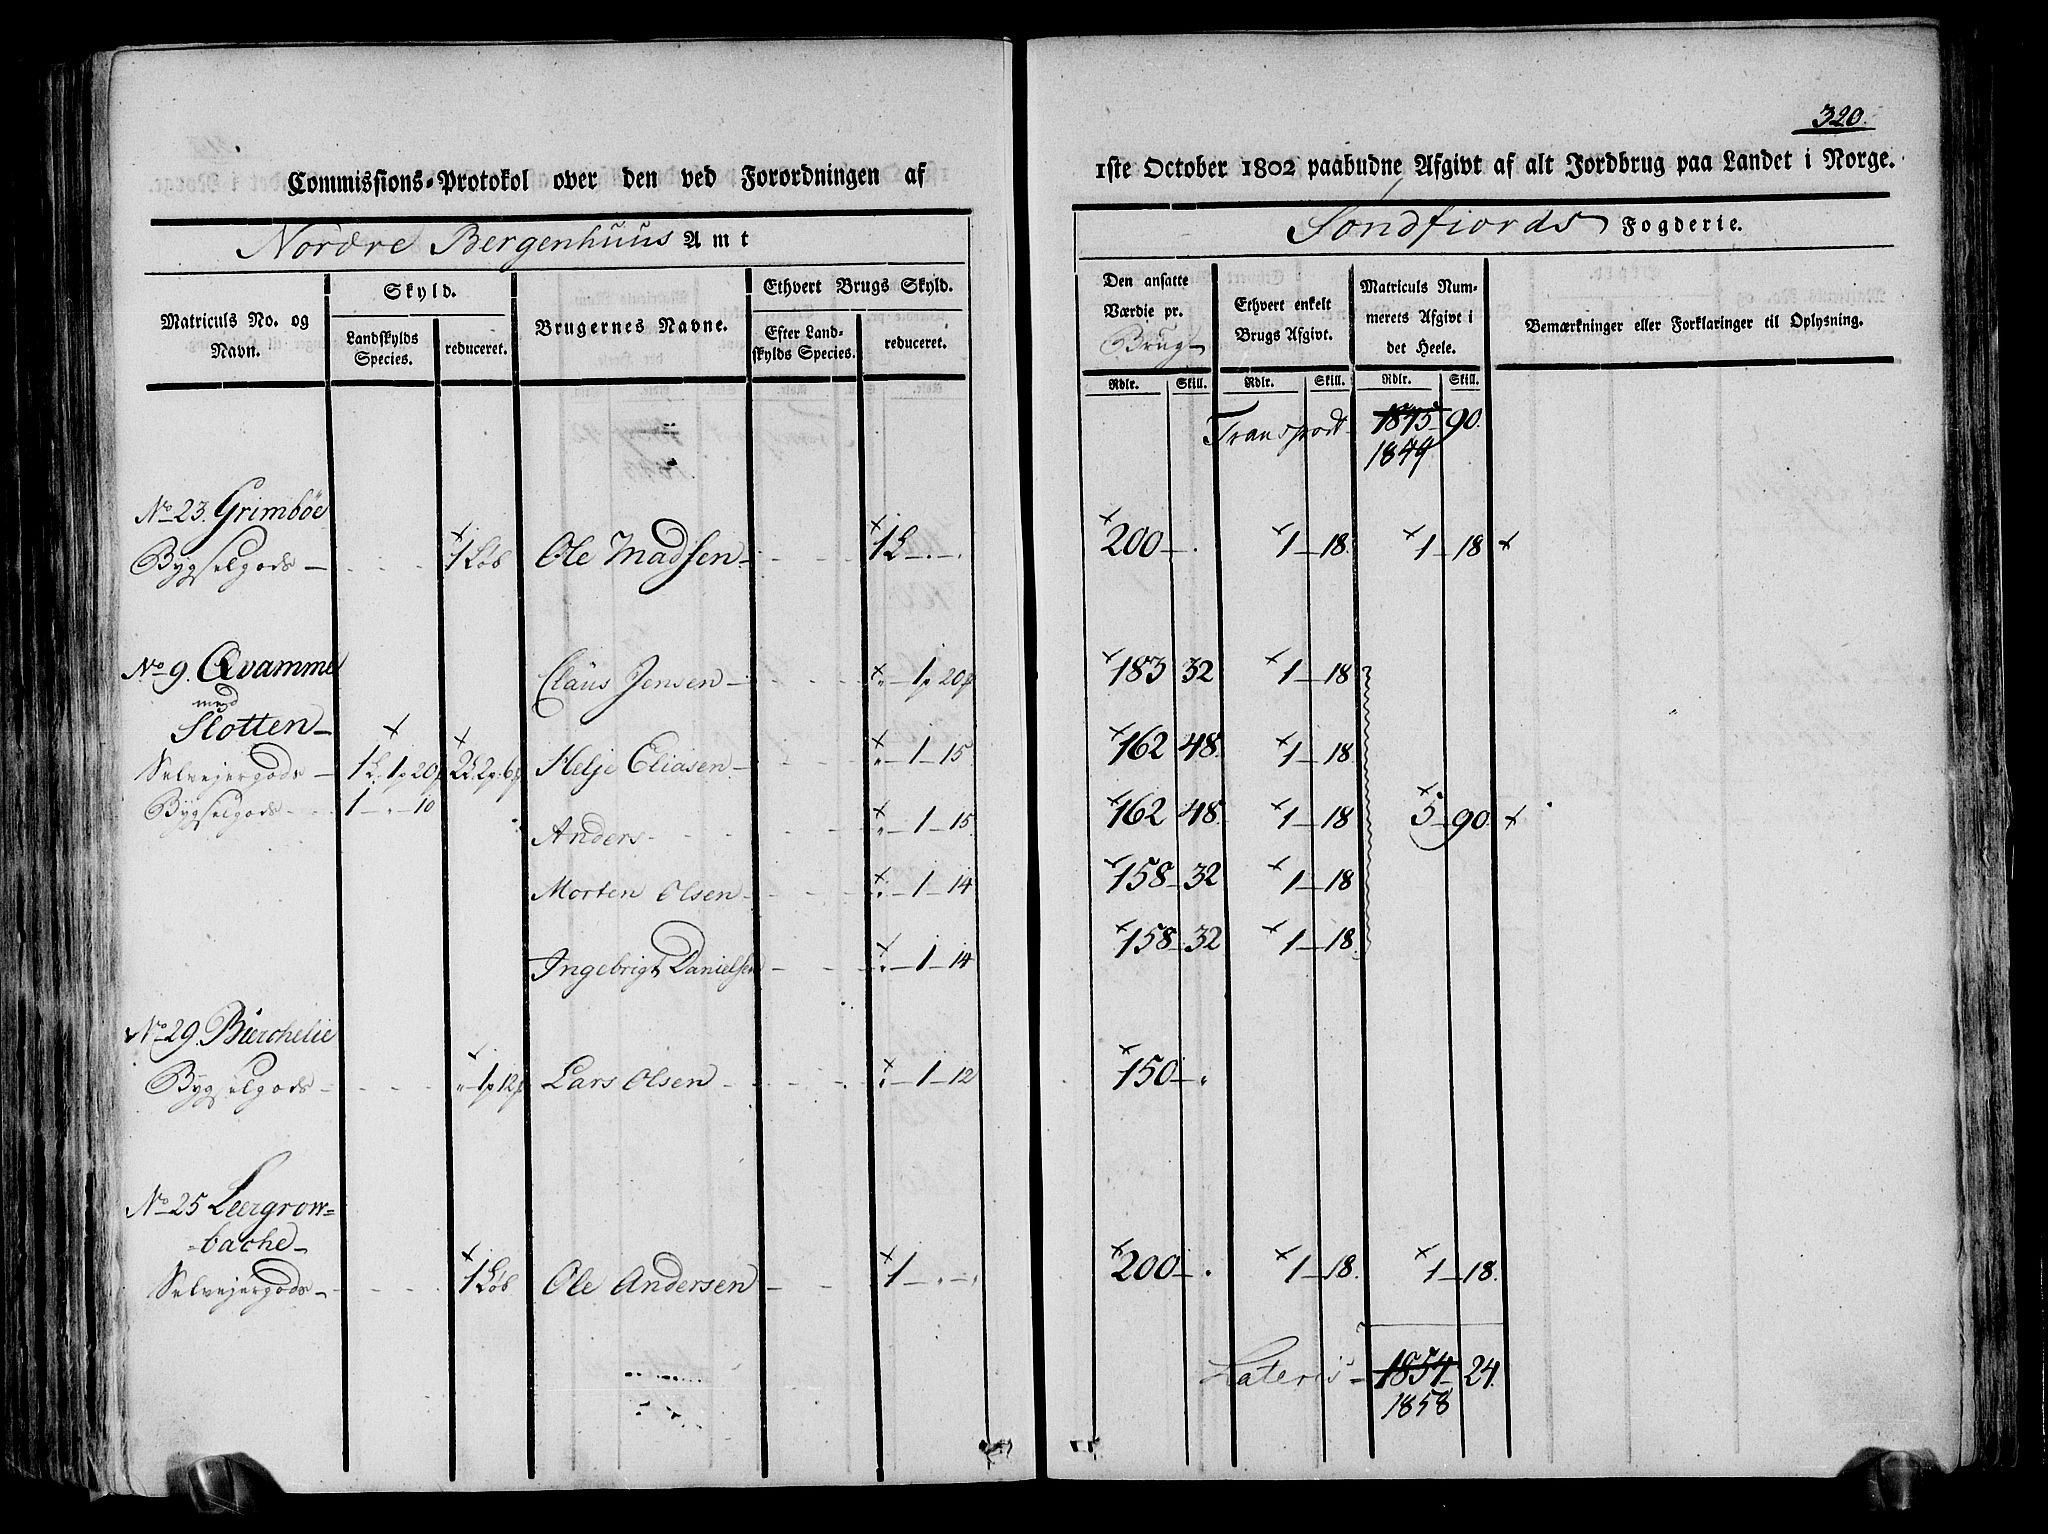 320.
Commissions-Protokol over den ved Forordningen af
1ste October 1802 paabudne Afgivt af alt Jordbrug paa Landet i Norge.
Nordre Bergenhuus Amt
Søndfiords Fogderie.
Matriculs No. og Navn.
Skyld.
Landskylds Species.
reduceret.
Brugernes Navne.
Ethvert Brugs Skyld.
Efter Landskylds Species.
reduceret.
Den ansatte Værdie pr. Brug
Ethvert enkelt Brugs Afgivt.
Matriculs Nummerets Afgivt i det Heele.
Bemærkninger eller Forklaringer til Oplysning.
Rdlr. Skill. Rdlr. Skill. Rdlr. Skill.
Transport 1845 90.
1849
No 23. Grimbøe
Bygselgods — 1 Løb Ole Madsen 1 L - . - 200 — . 1 — 18. 1 — 18
No 9. Qvamme Claus Jensen — " — 1 p 20 p 183 32 1 — 18
med
Slotten — Helje Eliasen — " — 1 — 15 162 48. 1 — 18
Selvejergods — 1 L. 1 p 20 p 2 L. 2 p. 6 p
Bygselgods — 1 — . — 10
Anders — " — 1 — 15. 162 48. 1 — 18 5 — 90.
Morten Olsen — " — 1 — 14 158 — 32 1 — 18
Ingebrigt Danielsen — " — 1 — 14 158 — 32 1 — 18.
No 29. Bierchelie
Bygselgods — " 1 p 12 p Lars Olsen — " — 1 — 12 150 — .
No 25 Leergrow=
bache —
Selvejergods — 1 Løb Ole Andersen — 1 — . — . 200 — . 1 — 18. 1 — 18.
Lateris — 1854 24.
1858